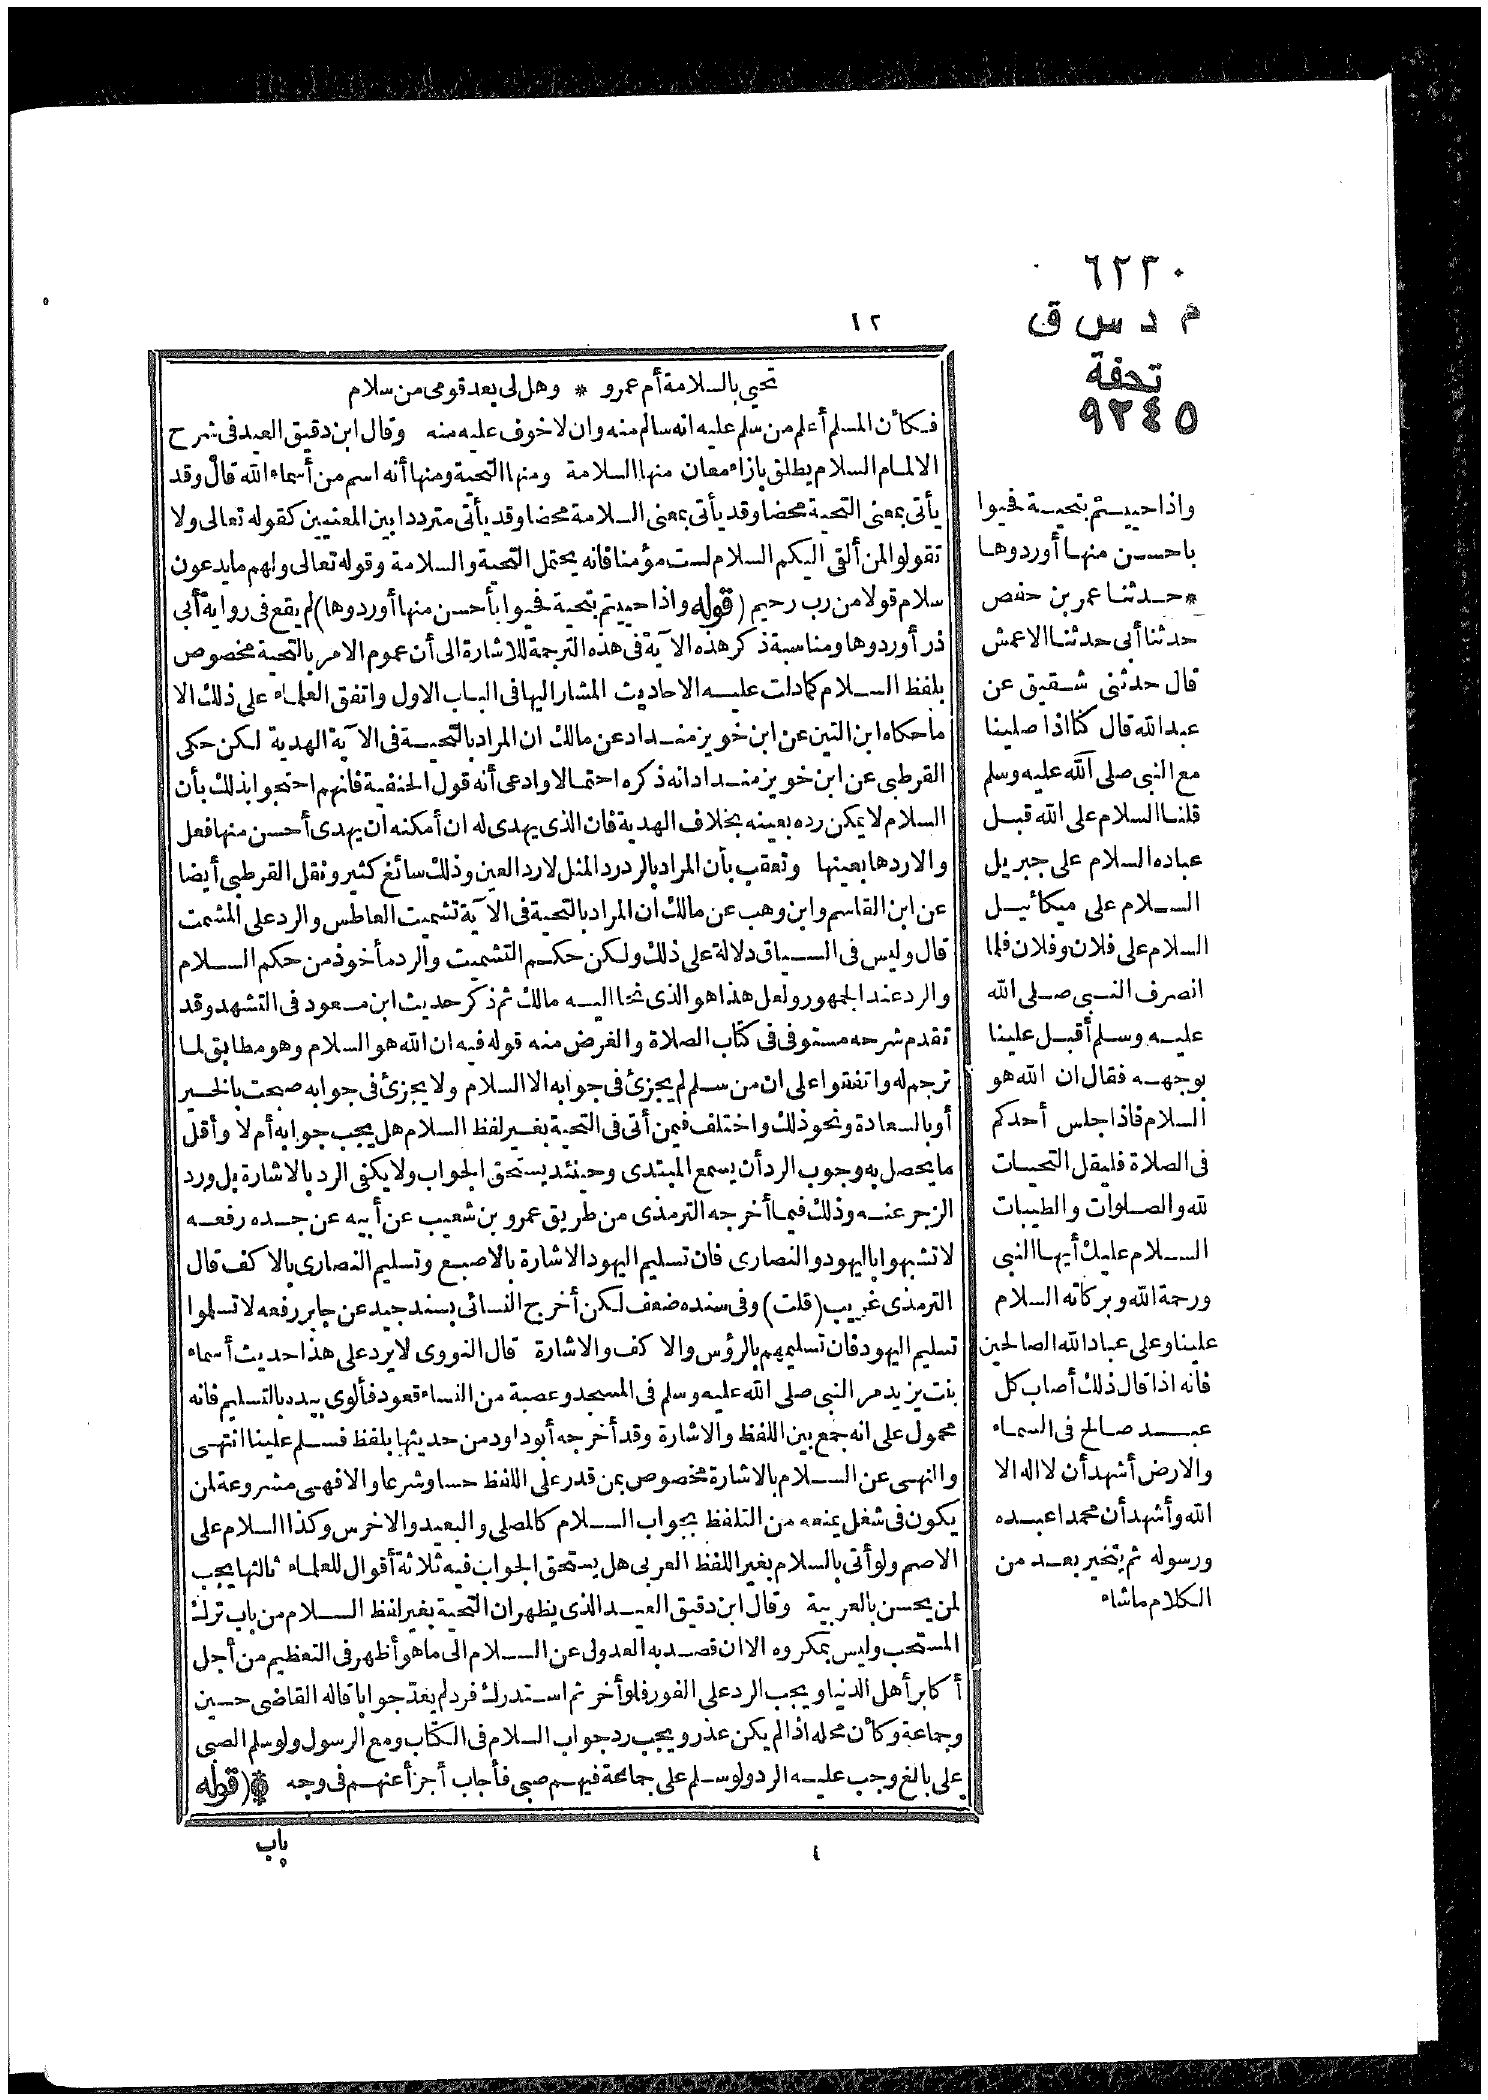 ١٢
٦٢٣٠
م د س ق
تحفة
٩٢٤٥
واذا حييتم بتحية فحيوا
باحسن منها أوردوها
* حدثنا عمر بن حفص
حدثنا أبى حدثنا الاعمش
قال حدثنى شقيق عن
عبد الله قال كنا اذا صلينا
مع النبى صلى الله عليه وسلم
قلنا السلام على الله قبل
عباده السلام على جبريل
السلام على ميكائيل
السلام على فلان وفلان فلما
انصرف النبى صلى الله
عليه وسلم أقبل علينا
بوجهه فقال ان الله هو
السلام فاذا جلس أحدكم
فى الصلاة فليقل التحيات
لله والصلوات والطيبات
السلام عليك أيها النبى
ورحمة الله وبركاته السلام
علينا وعلى عباد الله الصالحين
فانه اذا قال ذلك أصاب كل
عبد صالح فى السماء
والارض أشهد أن لا اله الا
الله وأشهد أن محمدا عبده
ورسوله ثم يتخير بعد من
الكلام ماشاء
تحيى بالسلامة أم عمرو * وهل لى بعد قومى من سلام
فكأن المسلم أعلم من سلم عليه انه سالم منه وان لا خوف عليه منه وقال ابن دقيق العيد فى شرح
الالمام السلام يطلق بازاء معان منها السلامة ومنها التحية ومنها أنه اسم من أسماء الله قال وقد
يأتى بمعنى التحية محضا وقد يأتى بمعنى السلامة محضا وقد يأتى مترددا بين المعنيين كقوله تعالى ولا
تقولوا لمن ألقى اليكم السلام لست مؤمنا فانه يحتمل التحية والسلامة وقوله تعالى ولهم ما يدعون
سلام قولا من رب رحيم (قوله واذا حييتم بتحية فحيوا بأحسن منها أوردوها) لم يقع فى رواية أبى
ذر أوردوها ومناسبة ذكر هذه الآية فى هذه الترجمة للاشارة الى أن عموم الامر بالتحية مخصوص
بلفظ السلام كما دلت عليه الاحاديث المشار اليها فى الباب الاول واتفق العلماء على ذلك الا
ما حكاه ابن التين عن ابن خويز منداد عن مالك ان المراد بالتحية فى الآية الهدية لكن حكى
القرطبى عن ابن خويز منداد انه ذكره احتمالا وادعى أنه قول الحنفية فانهم احتجوا بذلك بأن
السلام لا يمكن رده بعينه بخلاف الهدية فان الذى يهدى له ان أمكنه ان يهدى أحسن منها فعل
والا ردها بعينها وتعقب بأن المراد بالرد رد المثل لا رد العين وذلك سائغ كثير ونقل القرطبى أيضا
عن ابن القاسم وابن وهب عن مالك ان المراد بالتحية فى الآية تشميت العاطس والرد على المشمت
قال وليس فى السياق دلالة على ذلك ولكن حكم التشميت والرد مأخوذ من حكم السلام
والرد عند الجمهور ولعل هذا هو الذى نحا اليه مالك ثم ذكر حديث ابن مسعود فى التشهد وقد
تقدم شرحه مستوفى فى كتاب الصلاة والغرض منه قوله فيه ان الله هو السلام وهو مطابق لما
ترجم له واتفقوا على ان من سلم لم يجزئ فى جوابه الا السلام ولا يجزئ فى جوابه صبحت بالخير
أو بالسعادة ونحو ذلك واختلف فيمن أتى فى التحية بغير لفظ السلام هل يجب جوابه أم لا وأقل
ما يحصل به وجوب الرد أن يسمع المبتدى وحينئذ يستحق الجواب ولا يكفى الرد بالاشارة بل ورد
الزجر عنه وذلك فيما أخرجه الترمذى من طريق عمرو بن شعيب عن أبيه عن جده رفعه
لا تشبهوا باليهود والنصارى فان تسليم اليهود الاشارة بالاصبع وتسليم النصارى بالاكف قال
الترمذى غريب (قلت) وفى سنده ضعف لكن أخرج النسائى بسند جيد عن جابر رفعه لا تسلموا
تسليم اليهود فان تسليمهم بالرؤس والاكف والاشارة قال النووى لا يرد على هذا حديث أسماء
بنت يزيد مر النبى صلى الله عليه وسلم فى المسجد وعصبة من النساء قعود فألوى بيده بالتسليم فانه
محمول على انه جمع بين اللفظ والاشارة وقد أخرجه أبو داود من حديثها بلفظ فسلم علينا انتهى
والنهى عن السلام بالاشارة مخصوص بمن قدر على اللفظ حسا وشرعا والا فهى مشروعة لمن
يكون فى شغل يمنعه من التلفظ بجواب السلام كالمصلى والبعيد والاخرس وكذا السلام على
الاصم ولو أتى بالسلام بغير اللفظ العربى هل يستحق الجواب فيه ثلاثة أقوال للعلماء ثالثها يجب
لمن يحسن بالعربية وقال ابن دقيق العيد الذى يظهر ان التحية بغير لفظ السلام من باب ترك
المستحب وليس بمكروه الا ان قصد به العدول عن السلام الى ما هو أظهر فى التعظيم من أجل
أكابر أهل الدنيا ويجب الرد على الفور فلو أخر ثم استدرك فرد لم يعد جوابا قاله القاضى حسين
وجماعة وكأن محله اذا لم يكن عذر ويجب رد جواب السلام فى الكتاب ومع الرسول ولو سلم الصبى
على بالغ وجب عليه الرد ولو سلم على جماعة فيهم صبى فأجاب أجزأ عنهم فى وجه * (قوله
باب